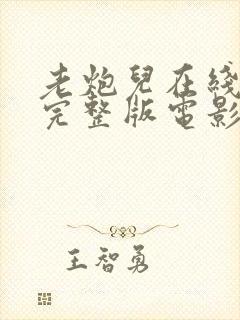 老炮兒在綫
完整版電影
王智勇